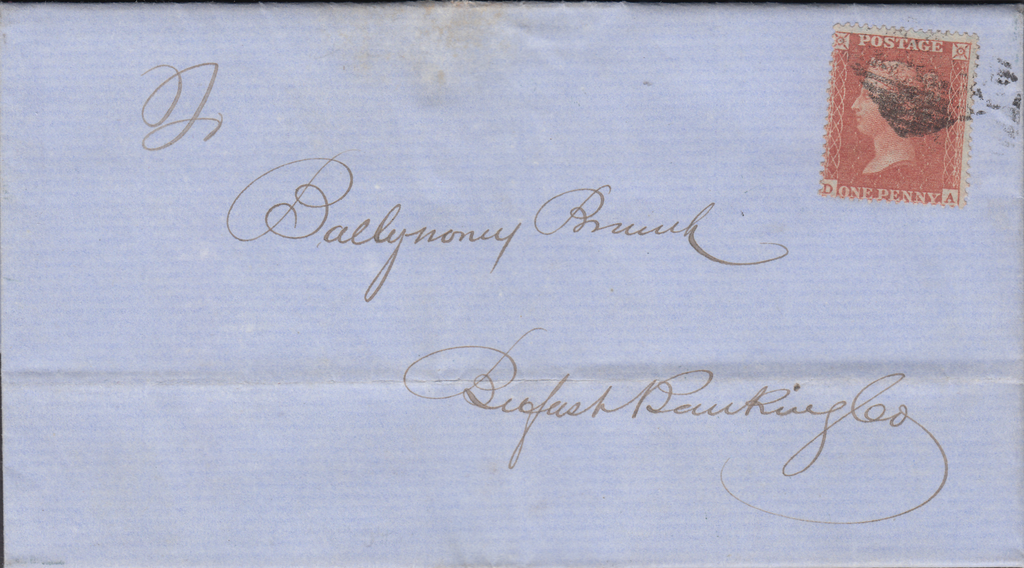 POSTAGE
D ONE PENNY A
Ballymoney Branch
Belfast Banking Co